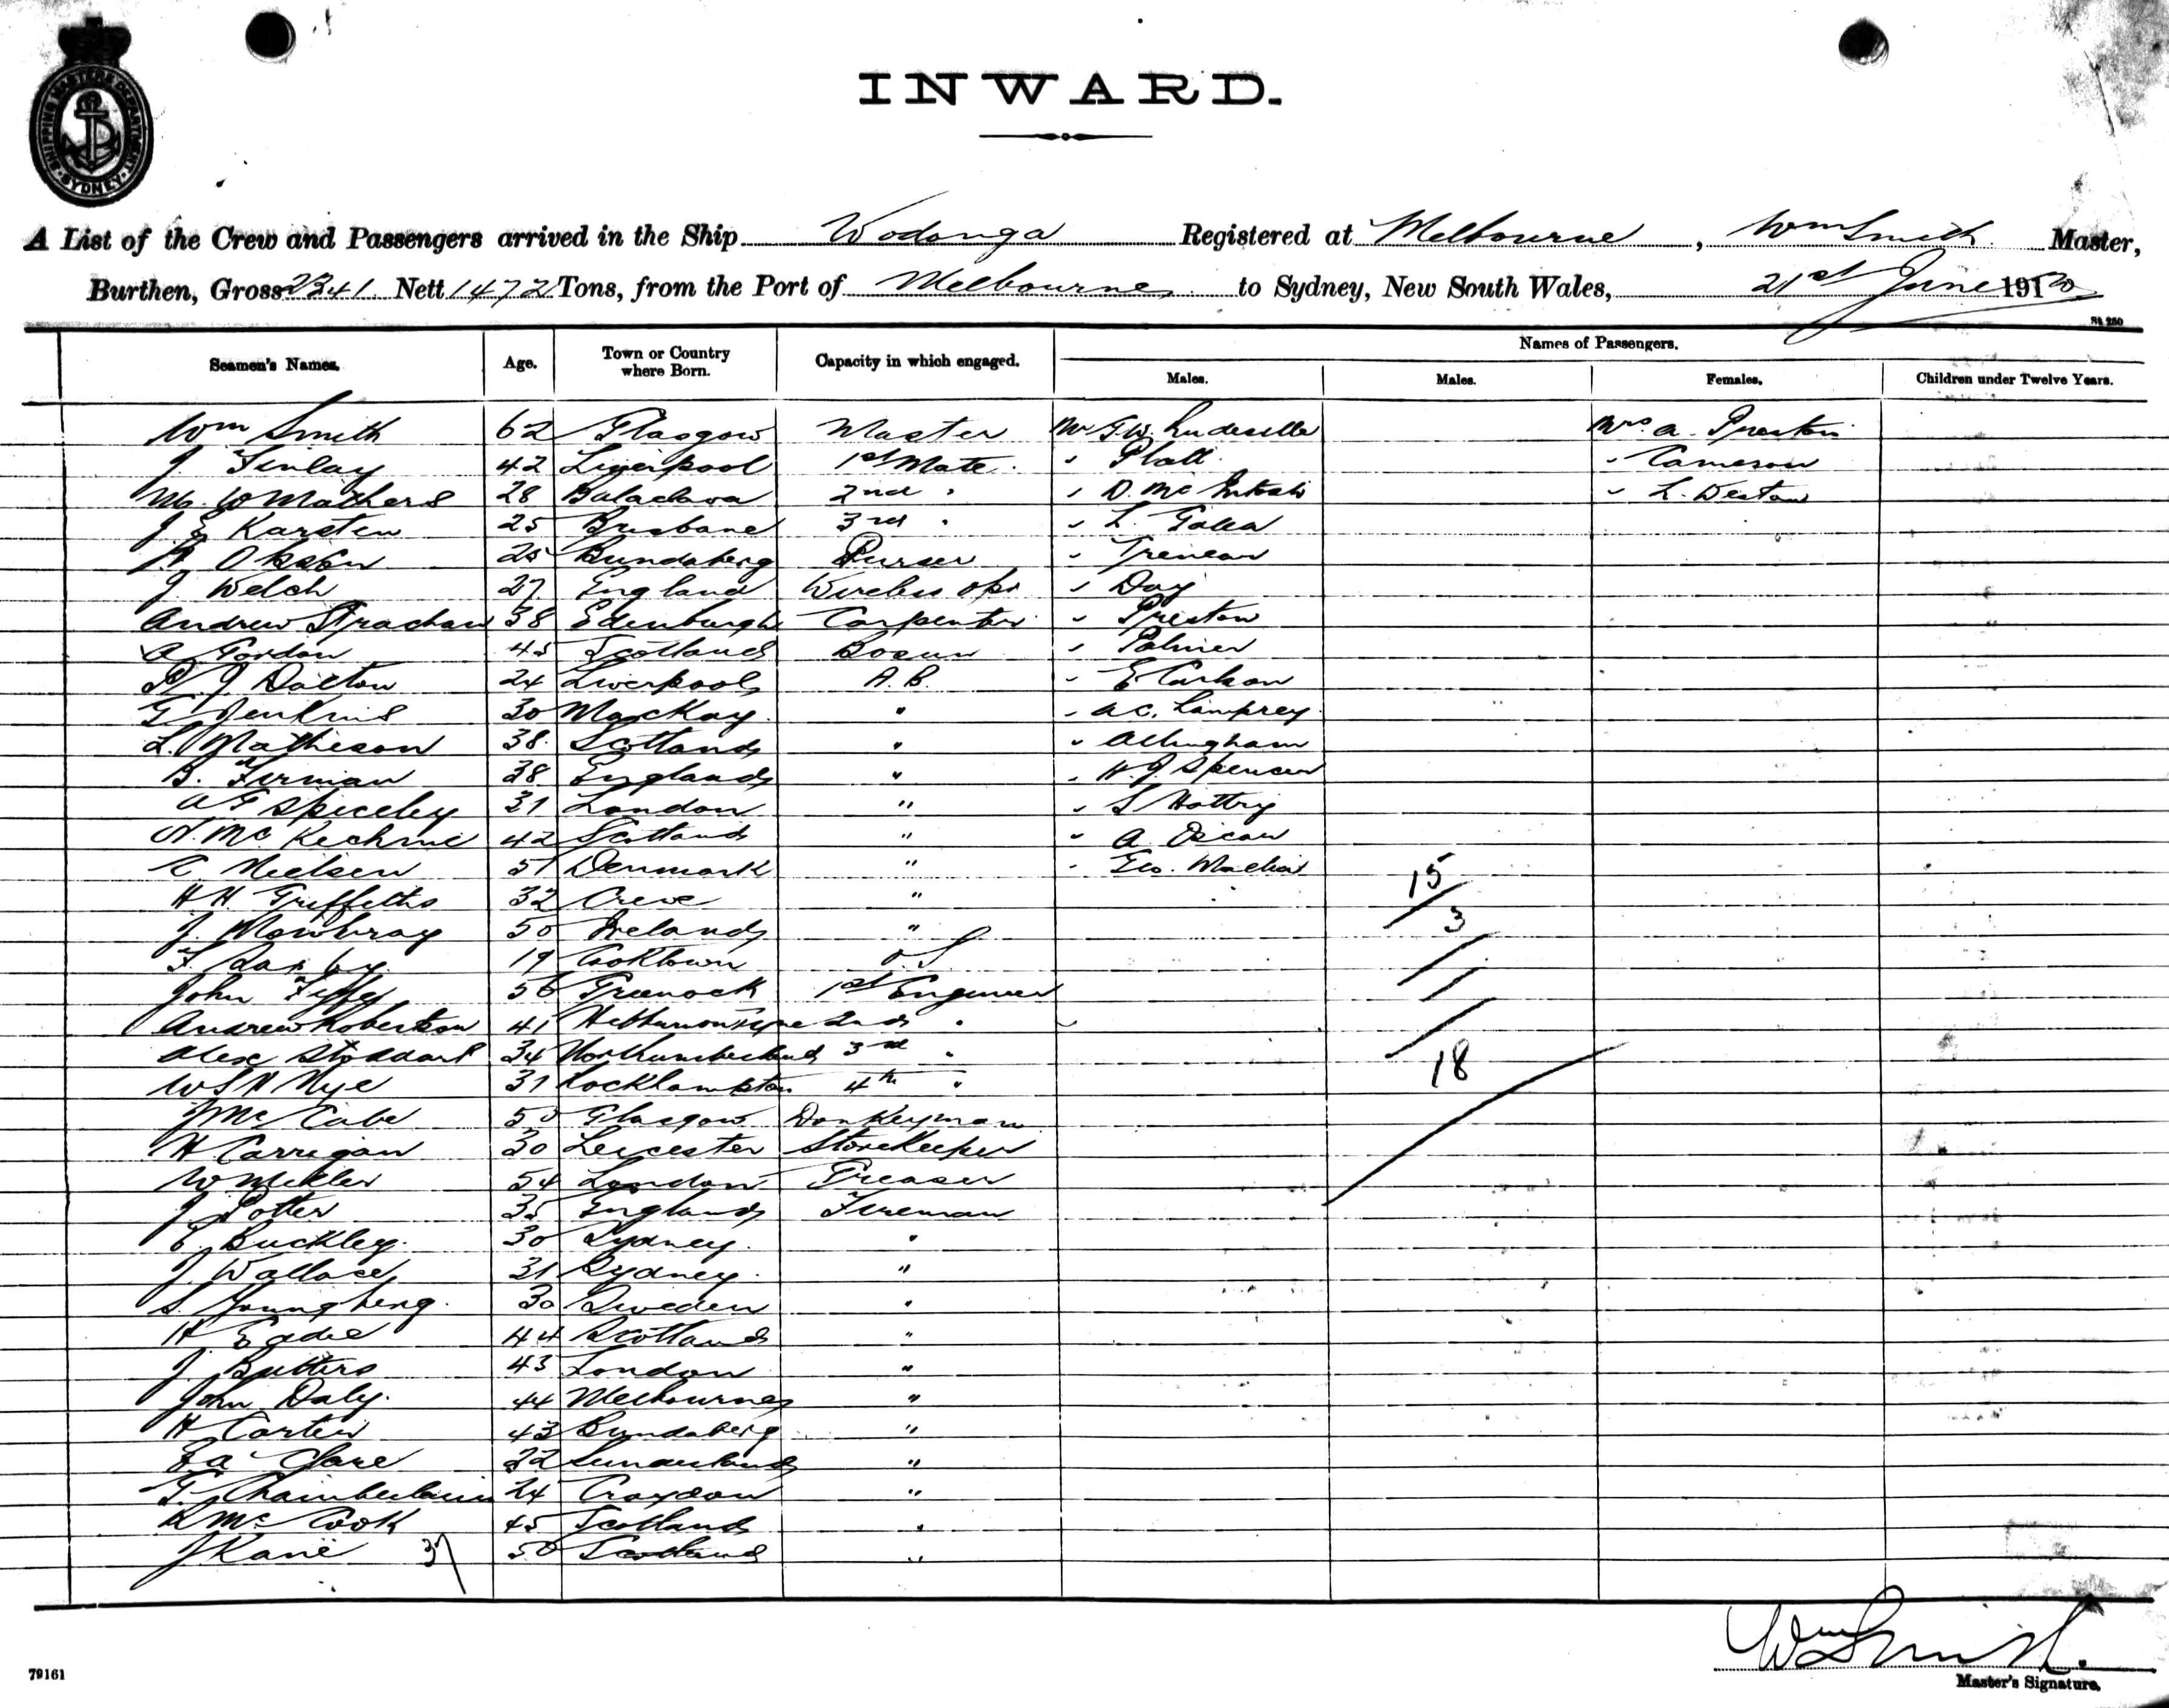 SHIPPING MASTERS DEPARTMENT SYDNEY
INWARD.
A List of the Crew and Passengers arrived in the Ship Wodonga Registered at Melbourne, Wm Smith Master,
Burthen, Gross 2341 Nett 1472 Tons, from the Port of Melbourne to Sydney, New South Wales, 21st June 1920
St 250
Names of Passengers.
Seamen's Names. Age. Town or Country where Born. Capacity in which engaged. Males. Males. Females. Children under Twelve Years.
Wm Smith 62 Glasgow Master Mr G.W. Mrs A. Preston
J Finlay 42 Liverpool 1st Mate " Platt " Cameron
W Mathers 28 Balaclava 2nd " " D. McIntosh " L. Weston
J E Karsten 25 Brisbane 3rd " " L.
25 Bundaberg Purser "
J Welch 27 England Wireless opr " Day
Andrew Strachan 38 Edenburgh Carpenter " Preston
A Gordon 45 Scotland Bosun " Palmer
P J Dalton 24 Liverpool A.B. "
G Jenkins 30 MacKay " " A.C. Lamprey
L. Matheson 38 Scotland " " Allingham
B. Firman 38 England " " H.J. Spencer
A G Spiceley 31 London " " S
N. McKechnie 42 Scotland " " A
C Nielsen 51 Denmark " " Geo.
H H Griffiths 32 Crewe " 15
J. Mowbray 50 Ireland " 3
F 19 Cooktown O S
John 56 Greenock 1st Engineer
Andrew Robertson 41 2nd "
Alex Stoddart 34 Northumberland 3rd " 18
W S N Nye 31 Rockhampton 4th "
J McCabe 50 Glasgow Donkeyman
H Carrigan 30 Leicester Storekeeper
W 54 London Greaser
J Potter 35 England Fireman
E Buckley 30 Sydney "
J Wallace 31 Sydney "
S. Youngberg 30 Sweden "
H Eadie 44 Scotland "
J. Butters 43 London "
John Daly 44 Melbourne "
H Carter 43 Bundaberg "
F A Clare 32 Sunderland "
G. Chamberlain 24 Croydon "
McCook 45 Scotland "
J Kane 37 50 Scotland "
Wm Smith.
Master's Signature.
79161